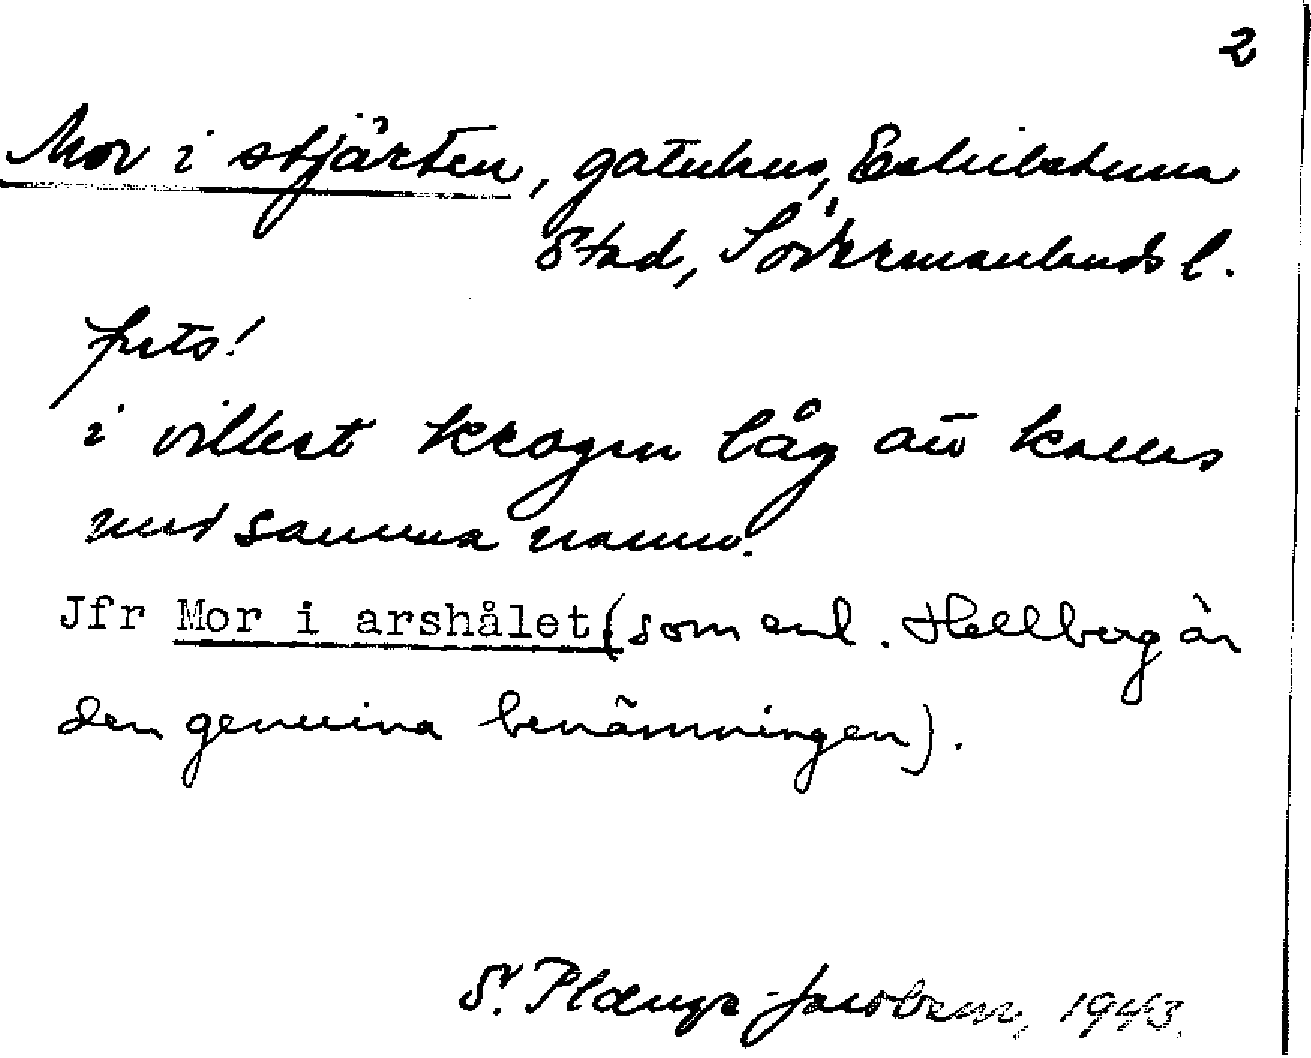 2
Mor i stjärten, gatuhus, Eskilstuna
Stad, Södermanlands l.
forts!
i vilket krogen låg att kallas
med samma namn.
Jfr Mor i arshålet (som enl. Hellberg är
den genuina benämningen).
S. Plænge-Jacobson, 1943.